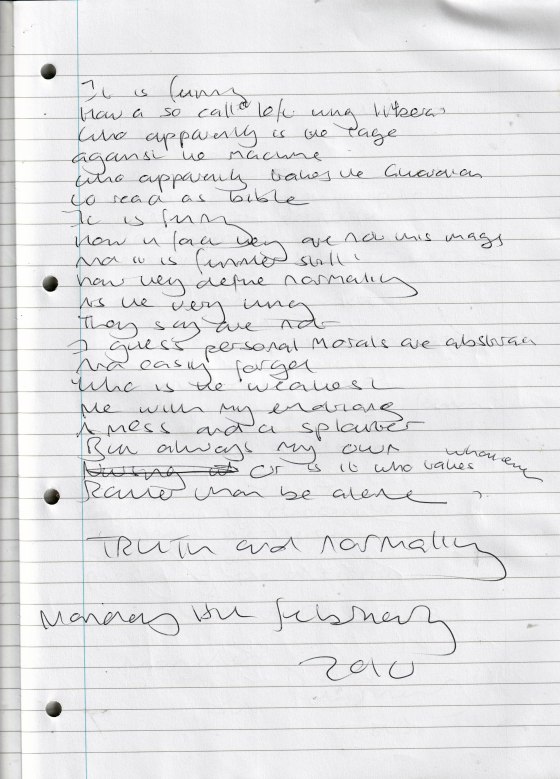 It is funny
How a so called left wing liberal
Who apparently is the rage
against the machine
Who apparently takes the Guardian
to read as bible
It is funny
How in fact they are not this image
And it is funnier still
how they define normality
As the very thing
They say are not
I guess personal Morals are abstract
And easily forget
Who is the weakest
Me with my emotions
A mess and a splatter
But always my own
Or is it who takes whatever
Rather than be alone
TRUTH and normality
Monday February
2010